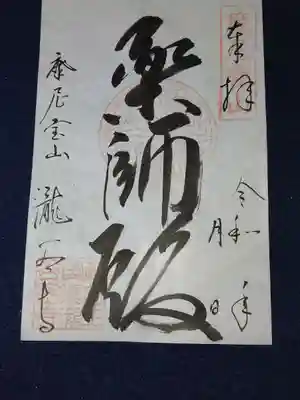 奉拝
令和 年
月 日
薬師殿
摩尼宝山 瀧 寺